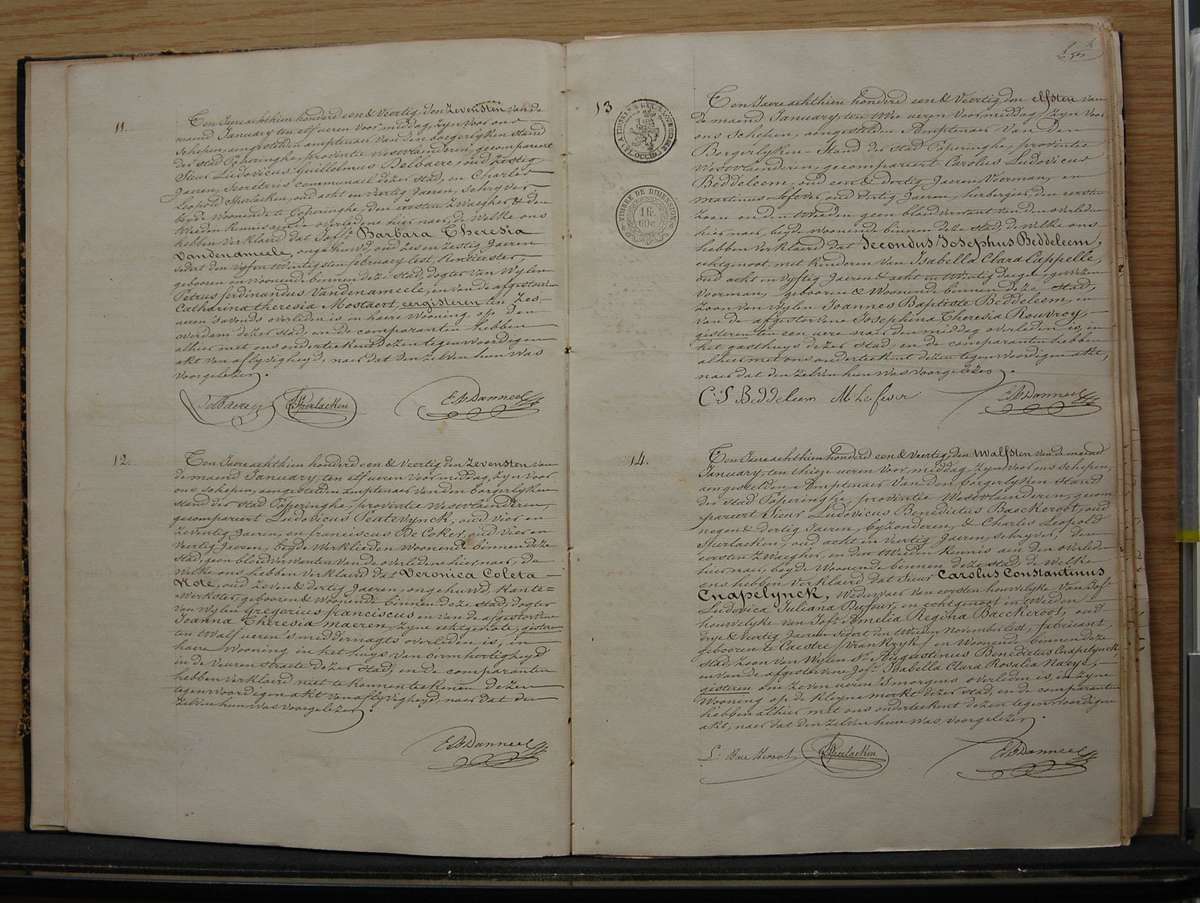 11.
Ten Jaere achthien honderd een & Veertig den Zevensten van de
maend January, ten elf ueren Voor middag, zyn Voor ons
Schepen, aengestelden amptenaer van den borgerlyken stand
der stad Poperinghe, provintie Westvlaenderen, gecompareert
Sieur Ludovicus Guillelmus Delbaere, oud zestig
Jaeren, Secretaris communael dezer stad, en Charles
Leopold Sterlacken, oud acht en Veertig Jaeren, Schryver
beyde Woonende te Poperinghe, den eersten Zwaegher & den
Tweeden kennis aen de overledene hier naer, de Welke ons
hebben Verklaerd dat Joff. Barbara Theresia
Vandenameele, ongehuwd, oud zes en zestig Jaeren
sedert den Vyf en twintigsten february lest, Rentierster,
geboren en Woonende binnen deze Stad, dogter van Wylen
Petrus ferdinandus Vandenameele, en van de afgestorvene
Catharina theresia Mostaert, eergisteren ten zes
ueren 's avonds overleden is in haere Wooning op den
overdam dezer stad, en de comparanten hebben
alhier met ons onderteekent dezen tegenwoordigen
akt van aflyvigheyd, naer dat den zelven hun Was
Voorgelezen.
Delbaere Sterlacken E.B. Danneel
12.
Ten Jaere achthien honderd een & Veertig den Zevensten van
de maend January, ten elf ueren Voor middag, zyn Voor
ons schepen, aengestelden amptenaer van den borgerlyken
stand der stad Poperinghe, provintie Westvlaenderen,
gecompareert Ludovicus oud Vier en
Zeventig Jaeren, en franciscus De Coker, oud Vier en
Veertig Jaeren, beyde Werklieden Woonende binnen deze
Stad, geen bloedverwanten van de overledene hier naer, de
Welke ons hebben Verklaerd dat Veronica Coleta
oud Zeven & dertig Jaeren, ongehuwd, Kante-
Werkster, geboren & Woonende binnen deze stad, dogter
van Wylen Gregorius franciscus en van de afgestorvene
Joanna Theresia maeren, zyne echtgenote, gisteren
ten twalf ueren 's middernagts overleden is, in
haere Wooning in het huys van
in de Veuren straete dezer stad, en de comparanten
hebben verklaerd niet te kennen teekenen dezen
tegenwoordigen akt van aflyvigheyd, naer dat den
zelven hun Was Voorgelezen.
E.B. Danneel
13
TIMBRE DE DIMENSION
1 fr.
60 c.
Ten Jaere achthien honderd een & Veertig den elfsten van
de maend January, ten twee ueren Voor middag, zyn Voor
ons Schepen, aengestelden Amptenaer Van den
Borgerlyken Stand der stad Poperinghe, provintie
Westvlaenderen, gecompareert Carolus Ludovicus
Beddeleem, oud een & dertig Jaeren Voerman, en
Martinus Lefever, oud dertig Jaeren, herbergier, den eersten
Zoon en den tweeden geen bloedverwant van den overleden
hier naer, beyde Woonende binnen deze stad, de Welke ons
hebben Verklaerd dat Secondus Josephus Beddeleem,
echtgenoot, met kinderen Van Isabella Clara Cappelle,
oud acht en Vyftig Jaeren & acht en twintig dagen, gewezen
Voerman, geboren & Woonende binnen deze Stad,
Zoon van Wylen Joannes Baptiste Beddeleem, en
van de afgestorvene Josephina Theresia Rouvroy,
gisteren ten een uere naer den middag overleden is, in
het gasthuys dezer Stad, en de comparanten hebben
alhier met ons onderteekent dezen tegenwoordigen akt,
naer dat den zelven hun Was Voorgelezen.
C: L Beddeleem M Lefever E.B. Danneel
14.
Ten Jaere achthien honderd een & Veertig den twalfsten van de maend
January, ten thien ueren Voor middag, zyn Voor ons schepen,
aengestelden Amptenaer Van den borgerlyken Stand
der stad Poperinghe, provintie Westvlaenderen, gecom-
pareert Sieur Ludovicus Benedictus Baeckeroot, oud
negen & dertig Jaeren, byzonderen, & Charles Leopold
Sterlacken, oud acht en Veertig Jaeren, schryver, den
eersten Zwaegher, en den tweeden kennis aen den overleden
hier naer, beyde Woonende binnen deze stad, de Welke
ons hebben Verklaerd dat Sieur Carolus Constantinus
Cnapelynck, Weduwaer van eersten houwelyke Van Joff.
Ludovica Juliana Dufour, en echtgenoot in tweeden
houwelyke van Joff. Amelia Regina Baeckeroot, oud
drye & Veertig Jaeren sedert den November lest, fabricant,
geboren te Caestre (Vrankryk) en Woonende binnen deze
Stad, Zoon van Wylen Sr. Augustinus Benedictus Cnapelynck
en van de afgestorvene Joff. Isabella Clara Rosalia
gisteren om Zeven ueren 's morgens overleden is in zyne
Wooning op de kleyne merkt dezer stad, en de comparanten
hebben alhier met ons onderteekent dezen tegenwoordigen
akt, naer dat den zelven hun Was Voorgelezen.
L: Baeckeroot Sterlacken E.B. Danneel